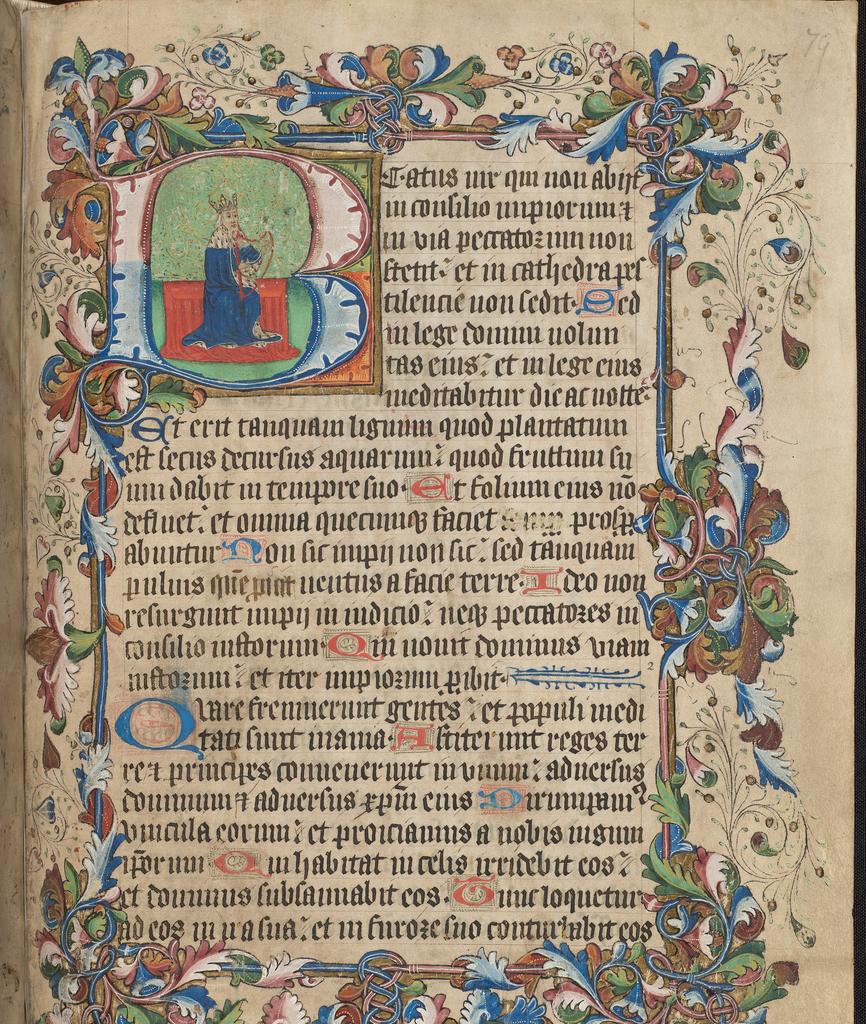 79
Beatus uir qui non abijt
in consilio impiorum ⁊
in via peccatorum non
stetit: et in cathedra pes
tilencie non sedit. Sed
in lege domini uolun
tas eius: et in lege eius
meditabitur die ac nocte.
Et erit tanquam lignum quod plantatum
est secus decursus aquarum: quod fructum su
um dabit in tempore suo. Et folium eius nō
defluet: et omnia quecumqꝫ faciet prosꝑ
abuntur Non sic impij non sic: sed tanquam
puluis que picit uentus a facie terre. Ideo non
resurgunt impij in iudicio: neqꝫ peccatores in
consilio iustorum. Qm̄ nouit dominus viam
iustorum: et iter impiorum ꝑibit.
2
Quare fremuerunt gentes: et populi medi
tati sunt inania. Astiterunt reges ter
re ⁊ principes conuenerunt in vnum: aduersus
dominum ⁊ aduersus xp̄m eius Dirumpamꝰ
vincula eorum: et proiciamus a nobis iugum
ip̄orum Qui habitat in celis irridebit eos:
et dominus subsannabit eos. Tunc loquetur
ad eos in ira sua: et in furore suo conturbabit eos